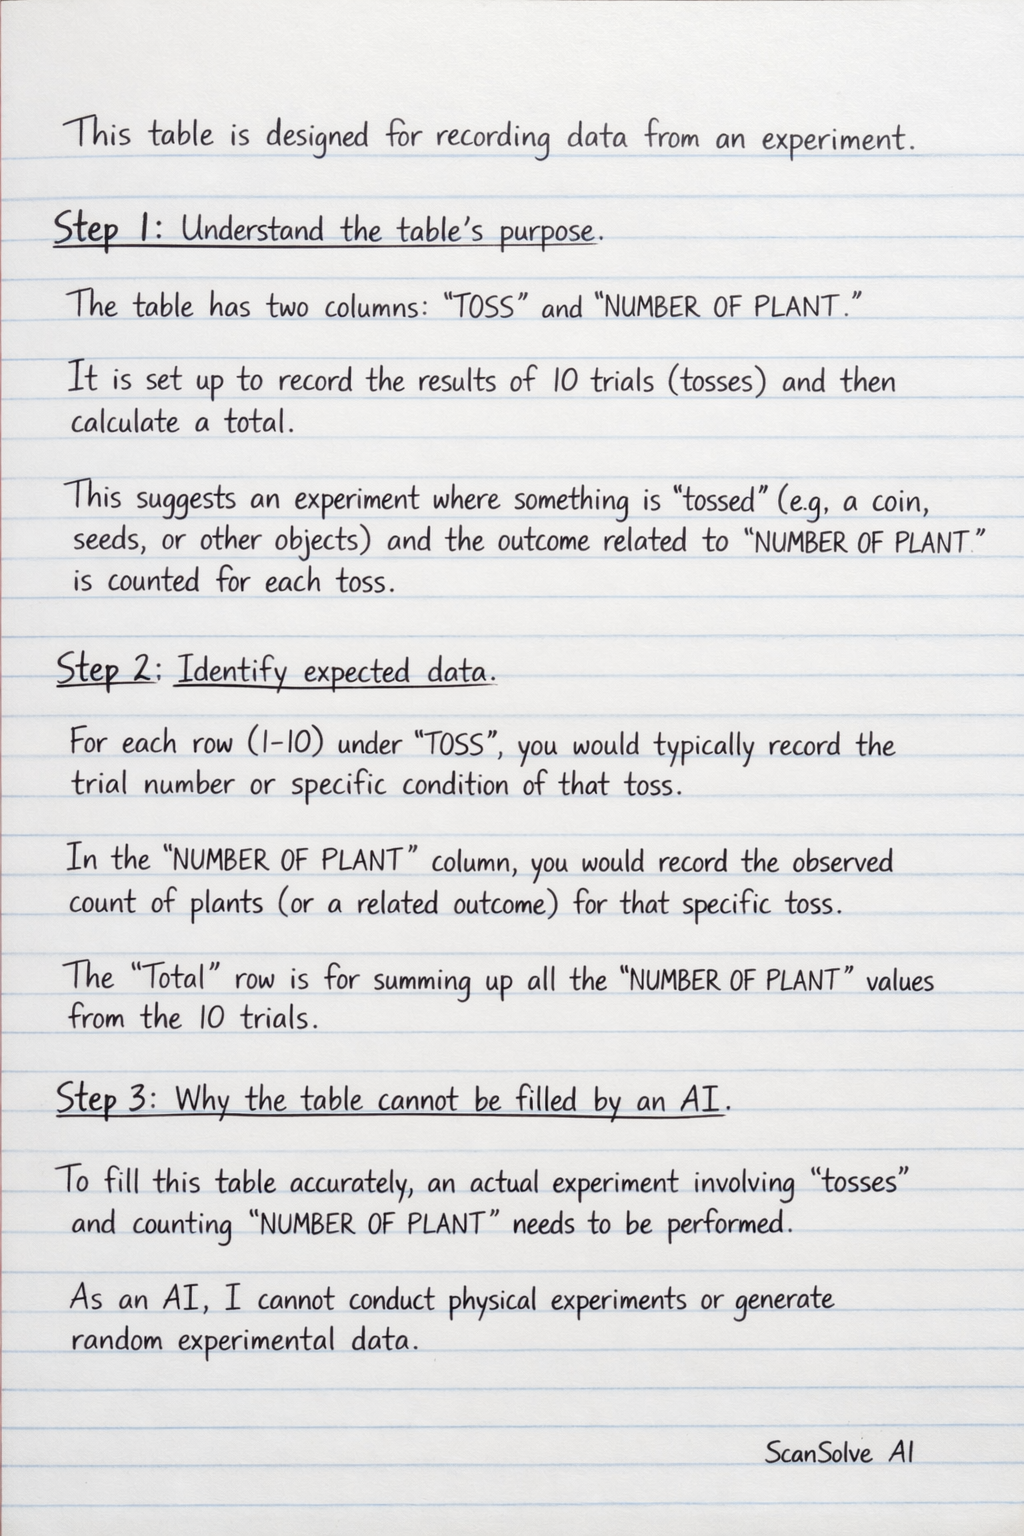 This table is designed for recording data from an experiment.
Step 1: Understand the table's purpose.
The table has two columns: "TOSS" and "NUMBER OF PLANT."
It is set up to record the results of 10 trials (tosses) and then
calculate a total.
This suggests an experiment where something is "tossed" (e.g, a coin,
seeds, or other objects) and the outcome related to "NUMBER OF PLANT."
is counted for each toss.
Step 2: Identify expected data.
For each row (1-10) under "TOSS", you would typically record the
trial number or specific condition of that toss.
In the "NUMBER OF PLANT" column, you would record the observed
count of plants (or a related outcome) for that specific toss.
The "Total" row is for summing up all the "NUMBER OF PLANT" values
from the 10 trials.
Step 3: Why the table cannot be filled by an AI.
To fill this table accurately, an actual experiment involving "tosses"
and counting "NUMBER OF PLANT" needs to be performed.
As an AI, I cannot conduct physical experiments or generate
random experimental data.
ScanSolve AI